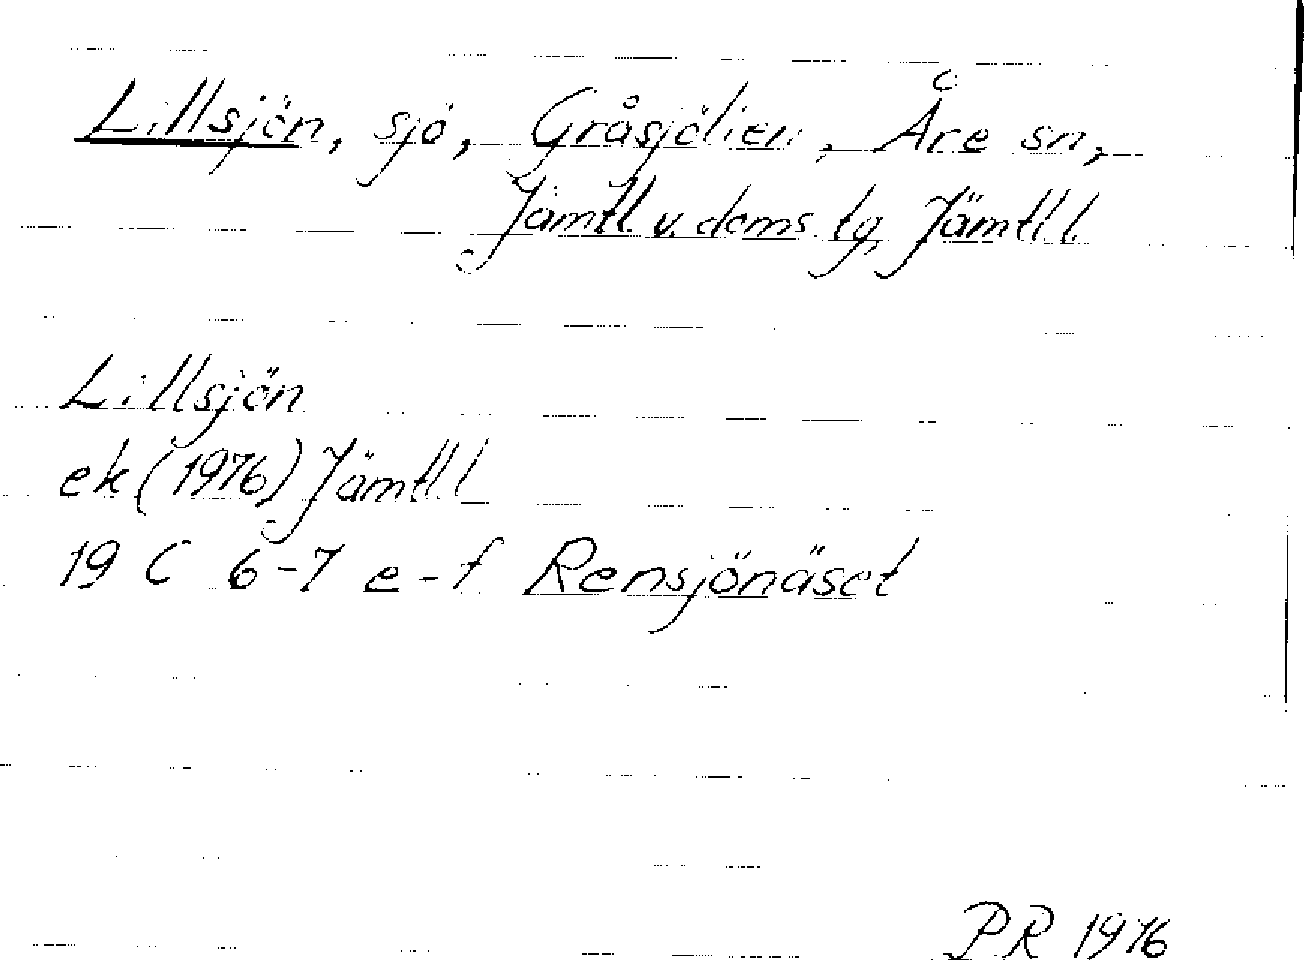 Lillsjön, sjö, Gråsjölien, Åre sn,
Jämtl. v. doms. tg, Jämtl. l.
Lillsjön
ek (1976) Jämtl. l
19 C 6-7 e-f Rensjönäset
PR 1976